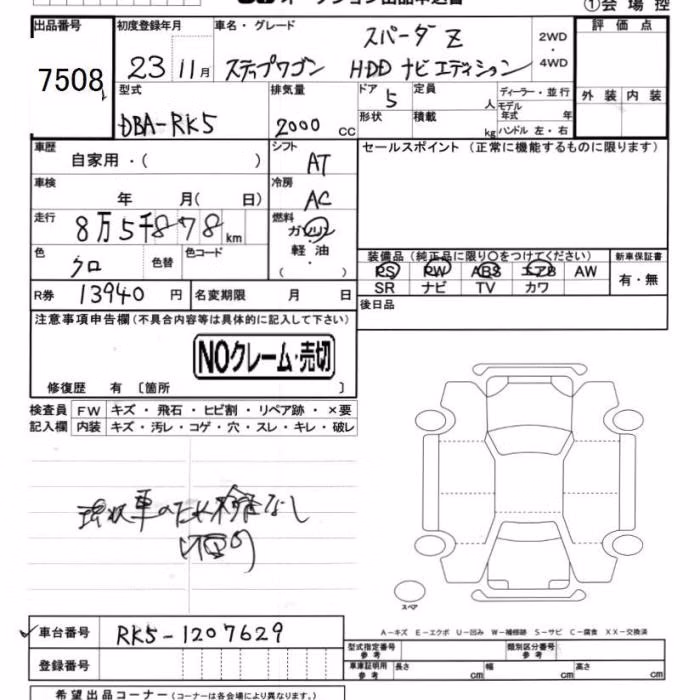 ①会場控
出品番号 初度登録年月 車名・グレード
7508 23 11月 ステップワゴン スパーダZ HDDナビエディション 2WD・4WD
評価点
型式 DBA-RK5 排気量 2000 cc
ドア 5 定員 人 ディーラー・並行
形状 積載 kg モデル年式 年 ハンドル 左・右
外装 内装
車歴 自家用・( )
シフト AT
セールスポイント(正常に機能するものに限ります)
車検 年 月( 日)
冷房 AC
走行 8万5千878km
燃料 ガソリン 軽油 ( ・ )
色 クロ 色替 色コード
装備品(純正品に限り○をつけてください) 新車保証書
PS PW ABS エアB AW 有・無
SR ナビ TV カワ
R券 13940 円 名変期限 月 日
後日品
注意事項申告欄(不具合内容等は具体的に記入して下さい)
NOクレーム・売切
修復歴 有 〔箇所 〕
検査員 FW キズ・飛石・ヒビ割・リペア跡・×要
記入欄 内装 キズ・汚レ・コゲ・穴・スレ・キレ・破レ
現状車のため検査なし
スペア
車台番号 RK5-1207629
A−キズ E−エクボ U−凹み W−補修跡 S−サビ C−腐食 XX−交換済
型式指定番号 参考 類別区分番号 参考
登録番号
車庫証明用 参考 長さ cm 幅 cm 高さ cm
希望出品コーナー(コーナーは各会場により異なります。)